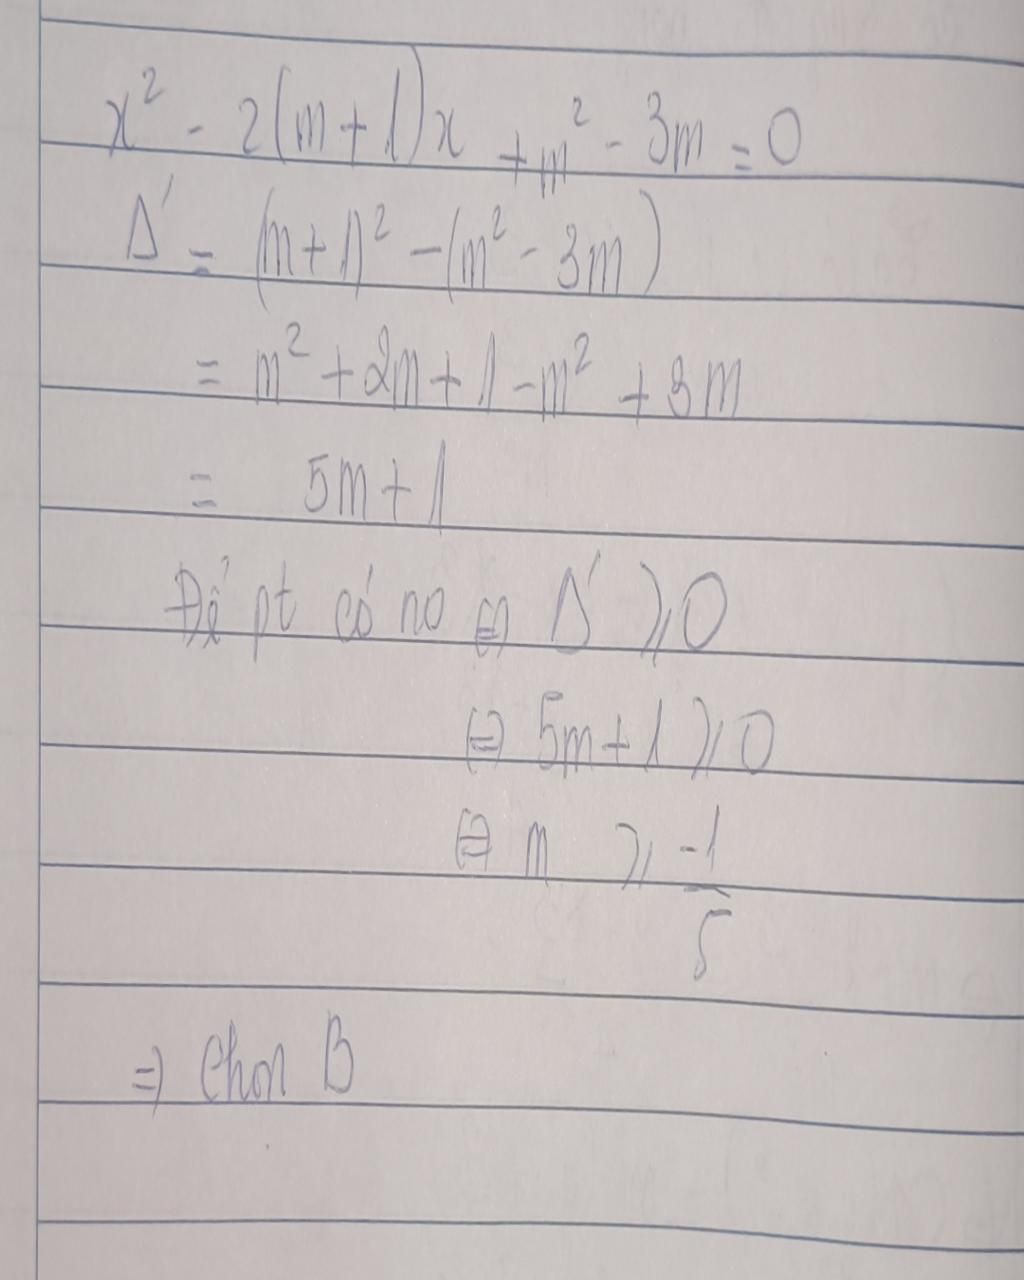 x² - 2(m+1)x + m² - 3m = 0
Δ' = (m+1)² - (m² - 3m)
= m² + 2m + 1 - m² + 3m
= 5m + 1
Để pt có no ⇔ Δ' ⩾ 0
⇔ 5m + 1 ⩾ 0
⇔ m ⩾ -1/5
⇒ Chon B